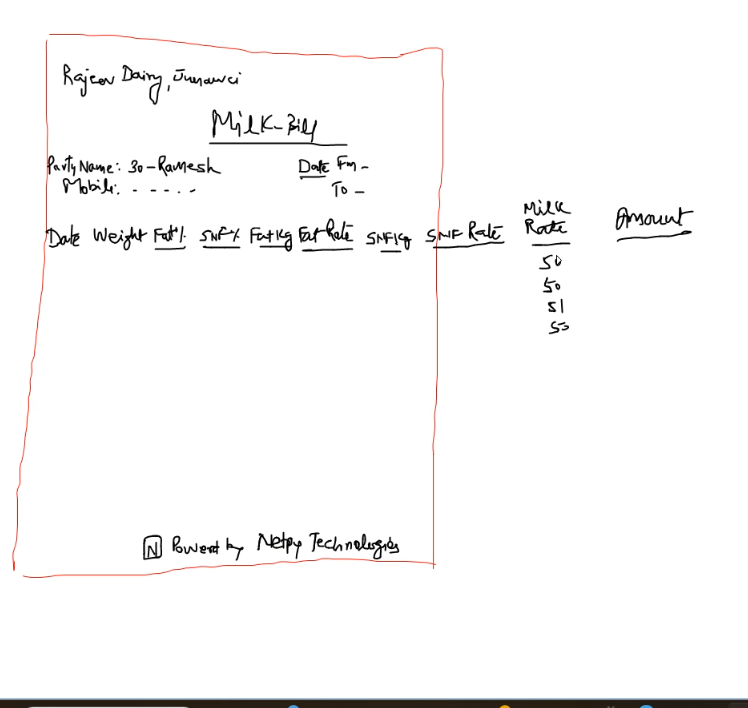 Rajeev Dairy,
Milk-Bill
Party Name: 30-Ramesh Date Fm -
Mobile: - - - - - To -
Date Weight Fat% SNF% FatKg Fat Rate SNFKg SNF Rate Milk Rate Amount
50
50
51
50
N Powerd by Netpy Technologies